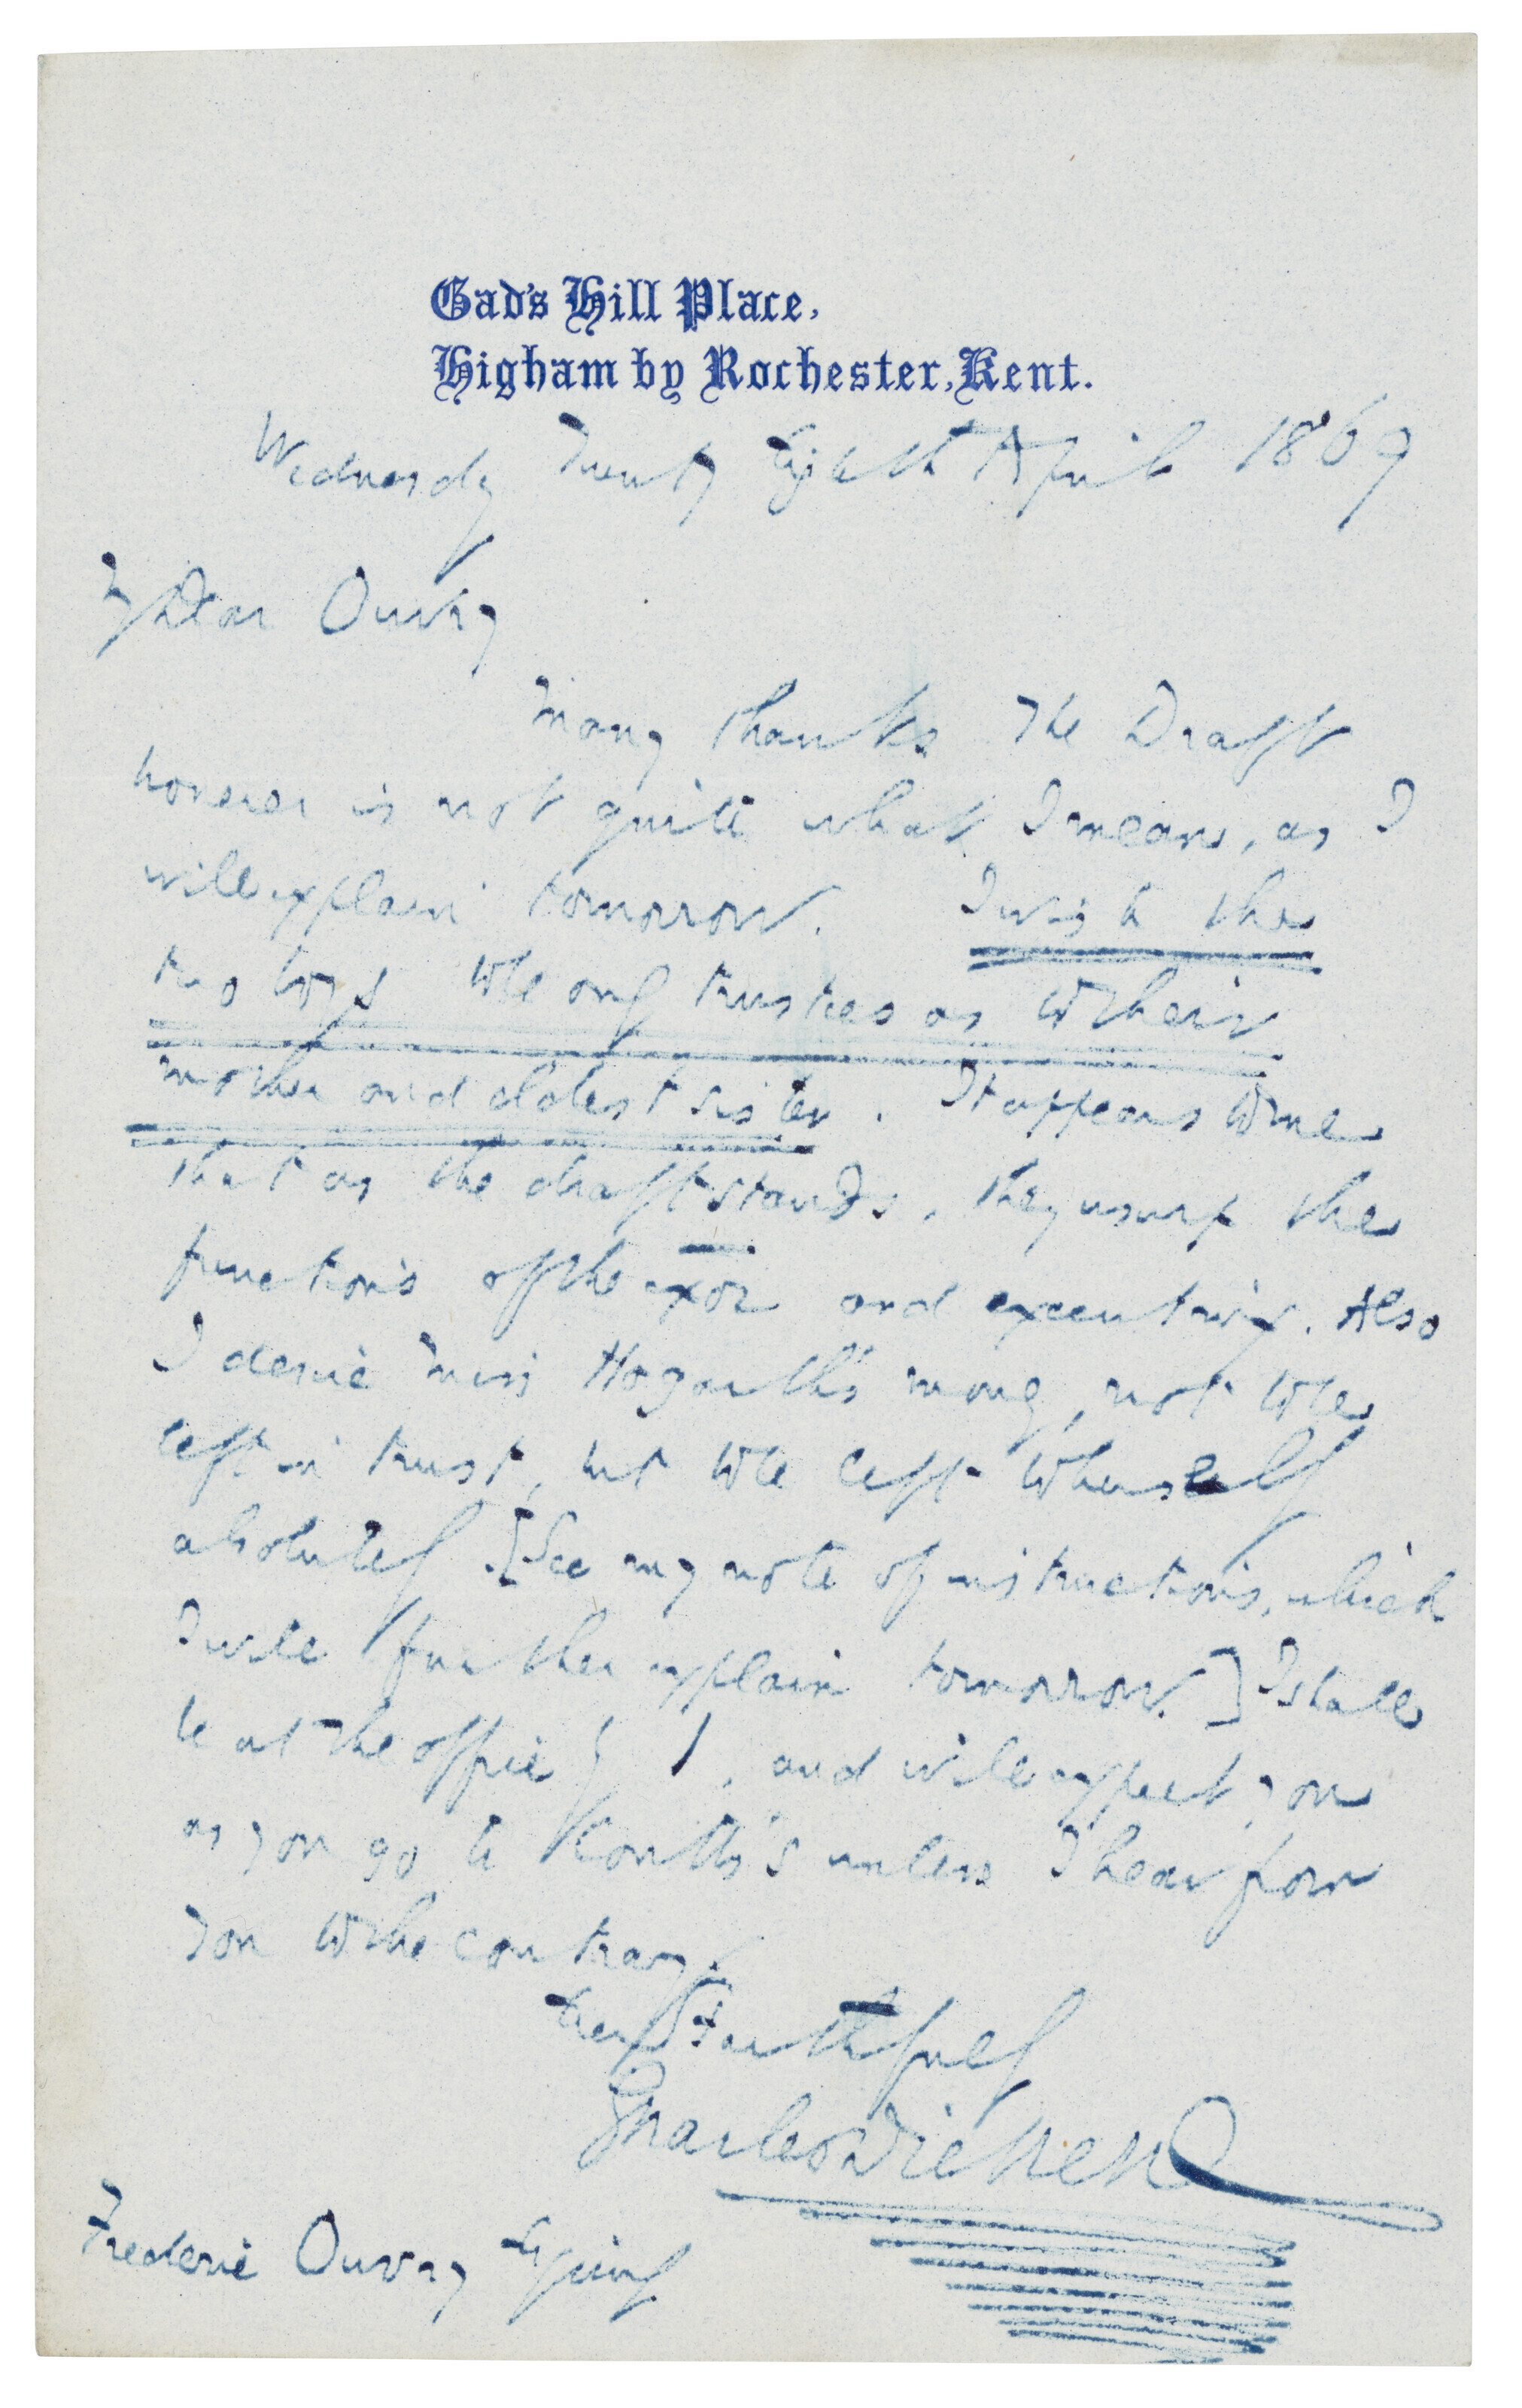 Gad's Hill Place,
Higham by Rochester, Kent.
Wednesday Twenty Eighth April 1869
My Dear Ouvry
Many thanks. The Draft
however is not quite what I mean, as I
will explain tomorrow. I wish the
two boys to be only trustees as to their
mother and eldest sister. It appears to me
that as the draft stands, they usurp the
functions of the exor and executrix. Also
I desire Miss Hogarth's money, not to be
left in trust, but to be left to herself
absolutely. [See my note of instructions, which
I will further explain tomorrow.] I shall
be at the office by 1, and will expect you
as you go to Coutts's unless I hear from
you to the contrary.
Very Faithfully
Charles Dickens
Frederic Ouvry Esquire